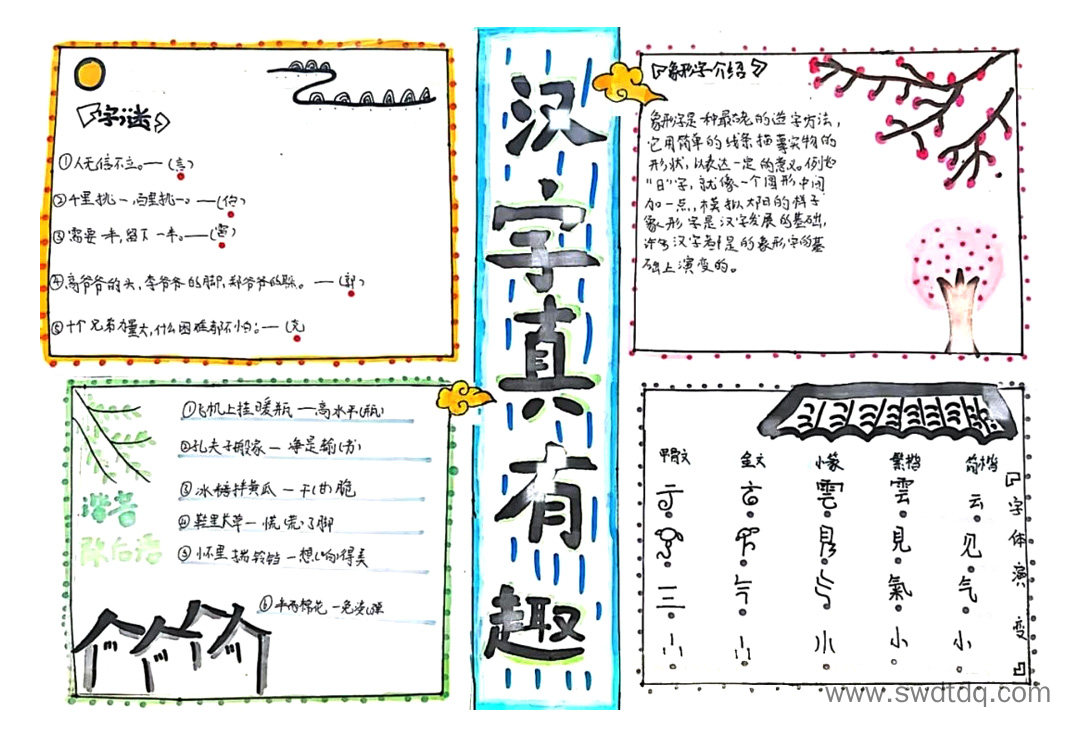 汉字真有趣
字谜
①人无信不立。—(言)
②千里挑一,百里挑一。—(伯)
③需要一半,留下一半。—(雷)
④高爷爷的头,李爷爷的脚,郑爷爷的耳朵。—(郭)
⑤十个兄弟力量大,什么困难都不怕。—(克)
象形字介绍
象形字是一种最老的造字方法,
它用简单的线条描摹实物的
形状,以表达一定的意义。例如
"日"字,就像一个圆形中间
加一点,模拟太阳的样子
象形字是汉字发展的基础,
许多汉字都是的象形字的基
础上演变的。
谐音
歇后语
①飞机上挂暖瓶—高水平(瓶)
②孔夫子搬家—净是输(书)
③冰糖拌黄瓜—干(甘)脆
④鞋里长草—慌(荒)了脚
⑤怀里揣铃铛—想(响)得美
⑥半两棉花—免谈(弹)
字体演变
甲骨文 金文 小篆 繁楷 简楷
雲 雲 云
見 见
氣 气
小 小 小
www.swdtdq.com